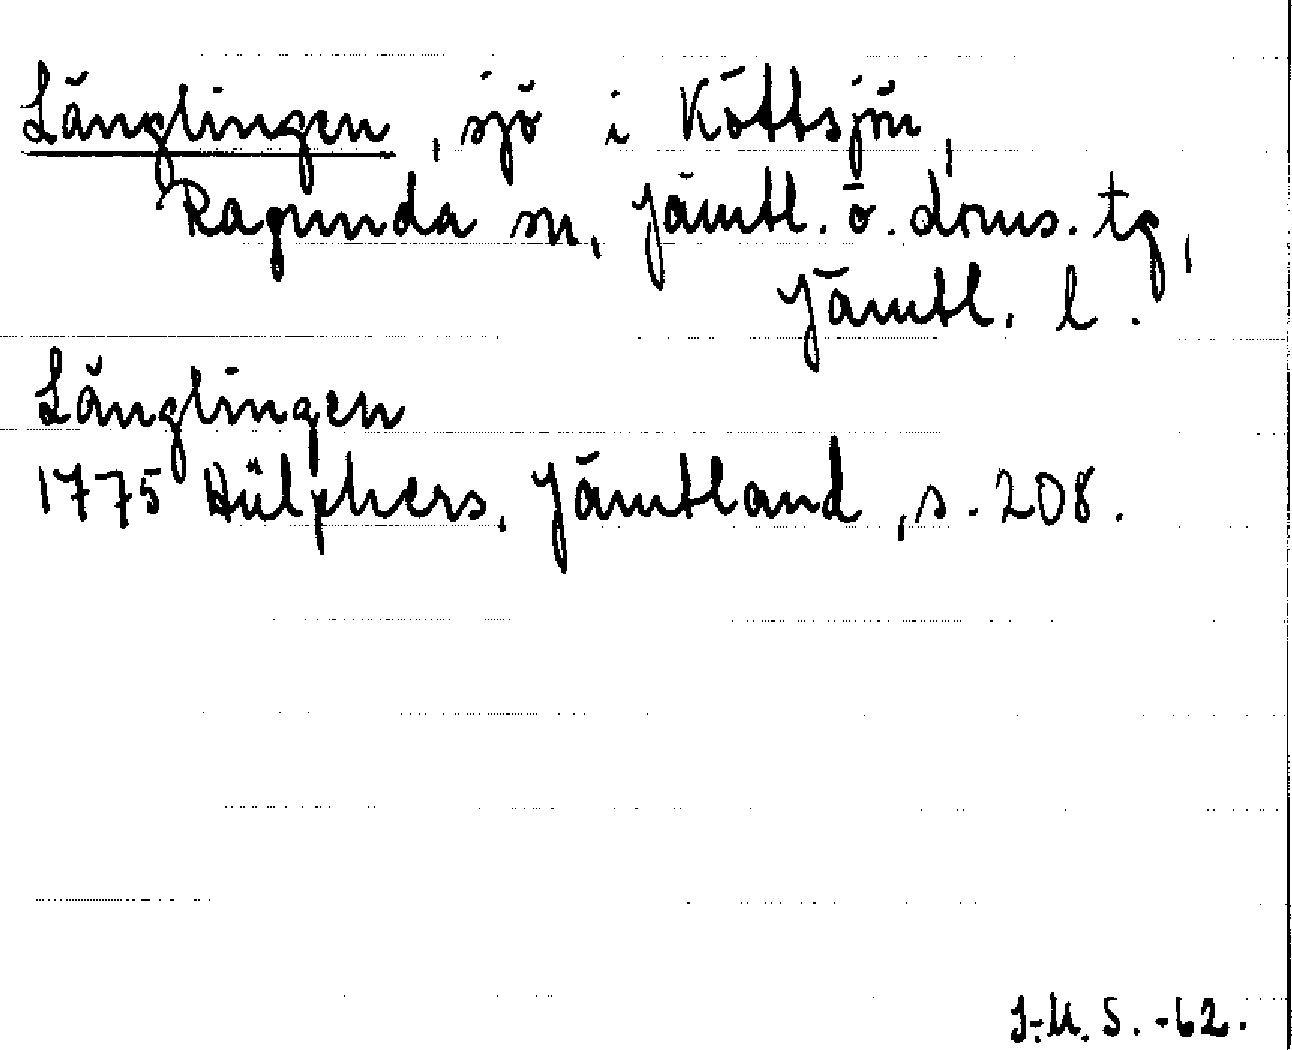 Länglingen, sjö i Köttsjön,
Ragunda sn, Jämtl. ö. doms. tg,
Jämtl. l.
Länglingen
1775 Hülphers, Jämtland, s. 208.
I-M. S. -62.